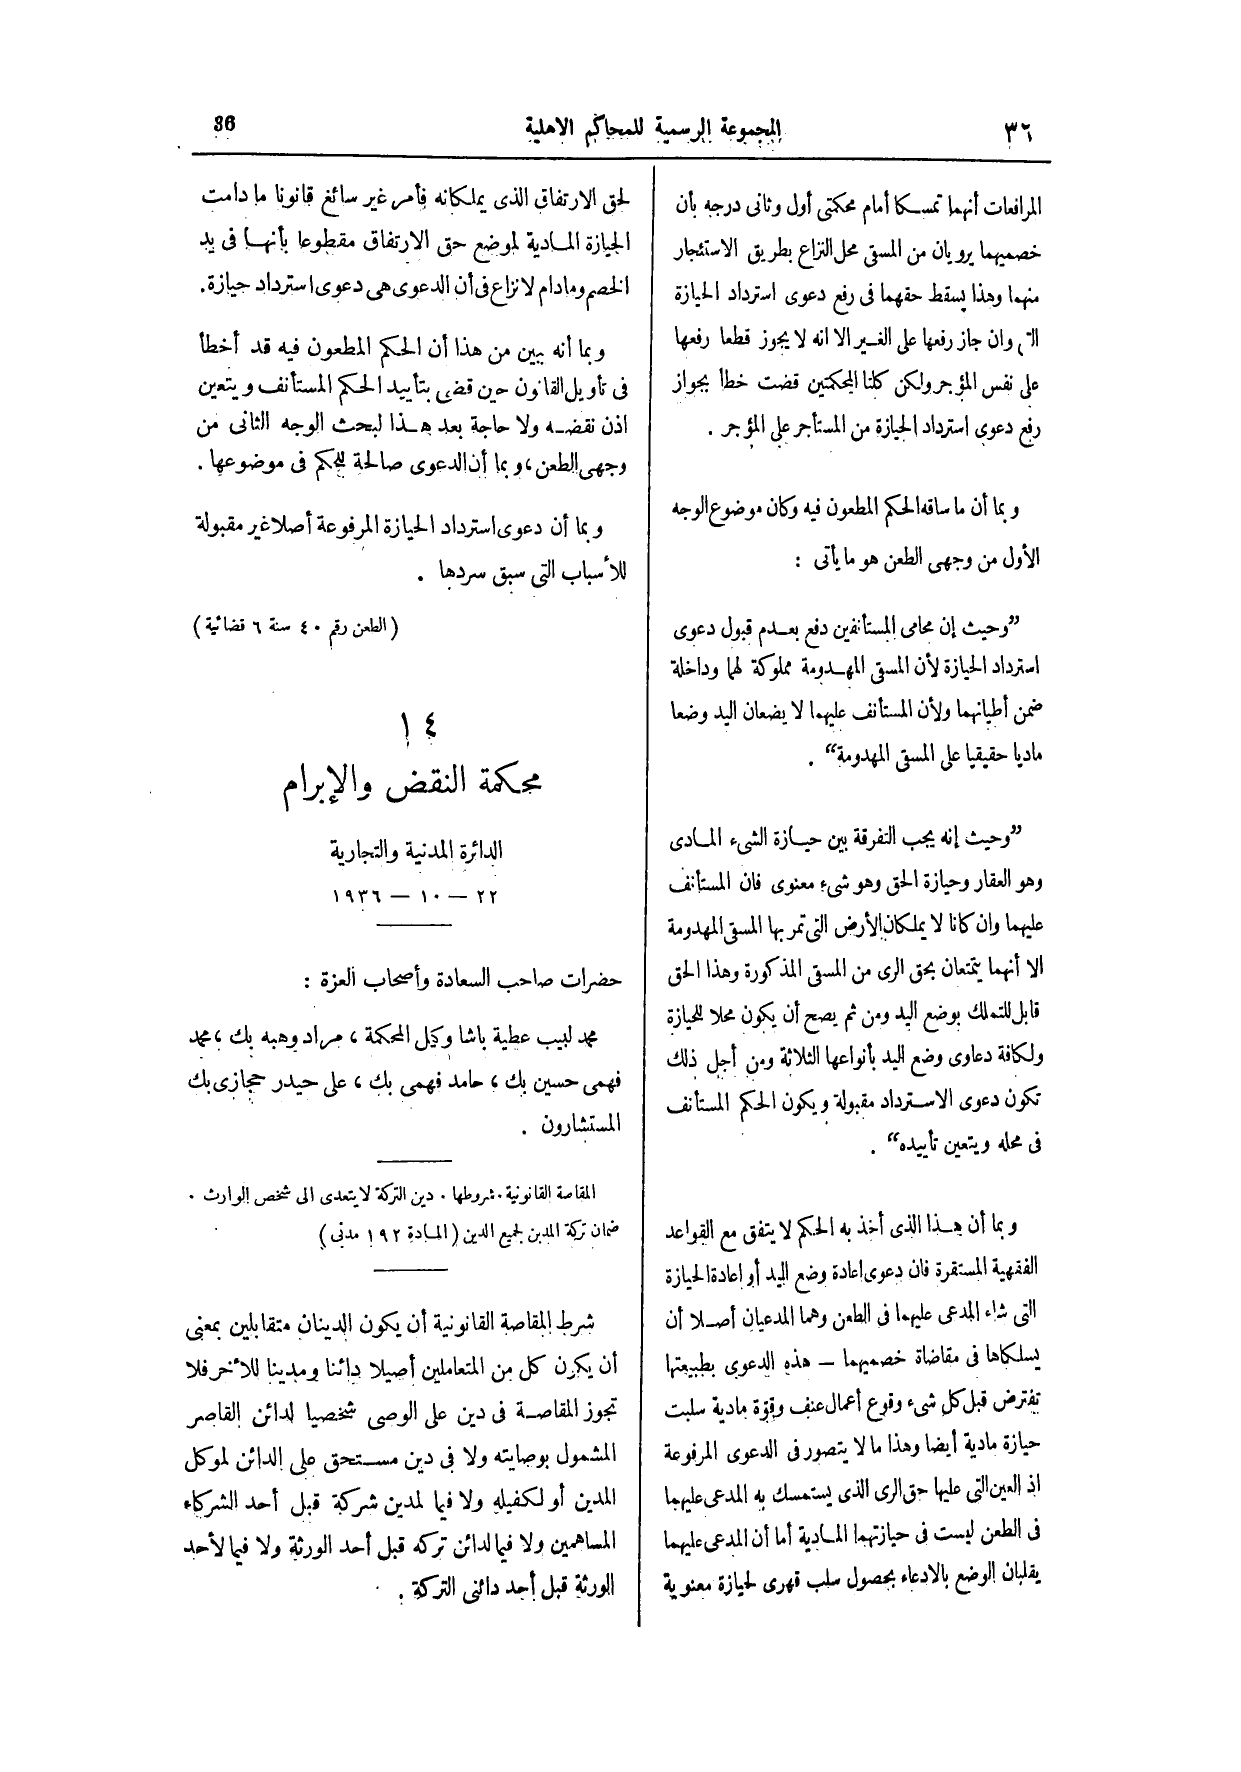 ٣٦
المجموعة الرسمية للمحاكم الاهلية
36
المرافعات أنهما تمسكا أمام محكمتى أول وثانى درجه بأن
خصميهما يرويان من المسقى محل النزاع بطريق الاستئجار
منهما وهذا يسقط حقهما فى رفع دعوى استرداد الحيازة
التى وان جاز رفعها على الغير الا انه لا يجوز قطعا رفعها
على نفس المؤجر ولكن كلتا المحكمتين قضت خطأ بجواز
رفع دعوى استرداد الحيازة من المستأجر على المؤجر .
وبما أن ما ساقه الحكم المطعون فيه وكان موضوع الوجه
الأول من وجهى الطعن هو ما يأتى :
”وحيث إن محامى المستأنفين دفع بعدم قبول دعوى
استرداد الحيازة لأن المسقى المهدومة مملوكة لهما وداخلة
ضمن أطيانهما ولأن المستأنف عليهما لا يضعان اليد وضعا
ماديا حقيقيا على المسقى المهدومة“ .
”وحيث إنه يجب التفرقة بين حيازة الشىء المادى
وهو العقار وحيازة الحق وهو شىء معنوى فان المستأنف
عليهما وان كانا لا يملكان الأرض التى تمر بها المسقى المهدومة
الا أنهما يتمتعان بحق الرى من المسقى المذكورة وهذا الحق
قابل للتملك بوضع اليد ومن ثم يصح أن يكون محلا للحيازة
ولكافة دعاوى وضع اليد بأنواعها الثلاثة ومن أجل ذلك
تكون دعوى الاسترداد مقبولة ويكون الحكم المستأنف
فى محله ويتعين تأييده“ .
وبما أن هذا الذى أخذ به الحكم لا يتفق مع القواعد
الفقهية المستقرة فان دعوى اعادة وضع اليد أو اعادة الحيازة
التى شاء المدعى عليهما فى الطعن وهما المدعيان أصلا أن
يسلكاها فى مقاضاة خصميهما — هذه الدعوى بطبيعتها
تفترض قبل كل شىء وقوع أعمال عنف وقوة مادية سلبت
حيازة مادية أيضا وهذا ما لا يتصور فى الدعوى المرفوعة
اذ العين التى عليها حق الرى الذى يستمسك به المدعى عليهما
فى الطعن ليست فى حيازتهما المادية أما أن المدعى عليهما
يقلبان الوضع بالادعاء بحصول سلب قهرى لحيازة معنوية
لحق الارتفاق الذى يملكانه فأمر غير سائغ قانونا ما دامت
الحيازة المادية لموضع حق الارتفاق مقطوعا بأنها فى يد
الخصم وما دام لا نزاع فى أن الدعوى هى دعوى استرداد حيازة .
وبما أنه يبين من هذا أن الحكم المطعون فيه قد أخطأ
فى تأويل القانون حين قضى بتأييد الحكم المستأنف ويتعين
اذن نقضه ولا حاجة بعد هذا لبحث الوجه الثانى من
وجهى الطعن ، وبما أن الدعوى صالحة للحكم فى موضوعها .
وبما أن دعوى استرداد الحيازة المرفوعة أصلا غير مقبولة
للأسباب التى سبق سردها .
(الطعن رقم ٤٠ سنة ٦ قضائية)
١٤
محكمة النقض والإبرام
الدائرة المدنية والتجارية
٢٢ — ١٠ — ١٩٣٦
حضرات صاحب السعادة وأصحاب العزة :
محمد لبيب عطية باشا وكيل المحكمة ، مراد وهبه بك ، محمد
فهمى حسين بك ، حامد فهمى بك ، على حيدر حجازى بك
المستشارون .
المقاصة القانونية . شروطها . دين التركة لا يتعدى الى شخص الوارث .
ضمان تركة المدين لجميع الدين (المادة ١٩٢ مدنى)
شرط المقاصة القانونية أن يكون الدينان متقابلين بمعنى
أن يكون كل من المتعاملين أصيلا دائنا ومدينا للآخر فلا
تجوز المقاصة فى دين على الوصى شخصيا لدائن القاصر
المشمول بوصايته ولا فى دين مستحق على الدائن لموكل
المدين أو لكفيله ولا فيما لمدين شركة قبل أحد الشركاء
المساهمين ولا فيما لدائن تركه قبل أحد الورثة ولا فيما لأحد
الورثة قبل أحد دائنى التركة .